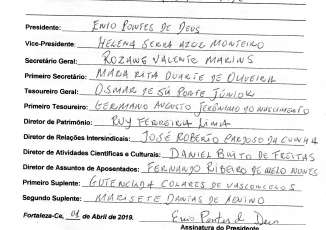 Presidente: ENIO PONTES DE DEUS
Vice-Presidente HELENA SERRA AZUL MONTEIRO
Secretário Geral: ROZANE VALENTE MARINS
Primeiro Secretário: MARA RITA DUARTE DE OLIVEIRA
Tesoureiro Geral: OSMAR DE SÁ PONTE JÚNIOR
Primeiro Tesoureiro: GERMANO AUGUSTO JERÔNIMO DO NASCIMENTO
Diretor de Patrimônio: RUY FERREIRA LIMA
Diretor de Relações Intersindicais: JOSÉ ROBERTO CARDOSO DA CUNHA
Diretor de Atividades Científicas e Culturais: DANIEL BRITO DE FREITAS
Diretor de Assuntos de Aposentados: FERNANDO RIBEIRO DE MELO NUNES
Primeiro Suplente: COLARES DE VASCONCELOS
Segundo Suplente: MARISETE DANTAS DE AQUINO
Fortaleza-Ce, 01 de Abril de 2019. Enio Pontes de Deus
Assinatura do Presidente